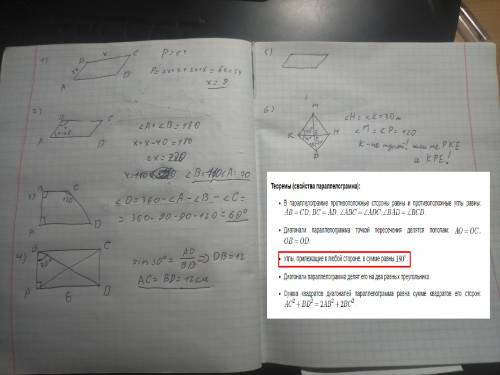 1)
B
x
C
A
D
P=2x+2·2x+x=6x=54
x=9
2)
B
C
A
D
∠A+∠B=180
x+x-40=180
2x=220
∠B=110 ∠A=70
3)
C
A
D
∠D=360-∠A-∠B-∠C=
=360-90-90-120=60°
4)
B
C
30°
A
6
D
sin30°= AD/BD ⇒ DB=12
AC=BD=12см
5)
6)
M
K
H
P
∠M=∠P=120
и KPE!
Теоремы (свойства параллелограмма):
• В параллелограмме противоположные стороны равны и противоположные углы равны:
AB = CD, BC = AD, ∠ABC = ∠ADC, ∠BAD = ∠BCD.
• Диагонали параллелограмма точкой пересечения делятся пополам: AO = OC,
OB = OD.
• Углы, прилежащие к любой стороне, в сумме равны 180°.
• Диагонали параллелограмма делят его на два равных треугольника.
• Сумма квадратов диагоналей параллелограмма равна сумме квадратов его сторон:
AC² + BD² = 2AB² + 2BC²